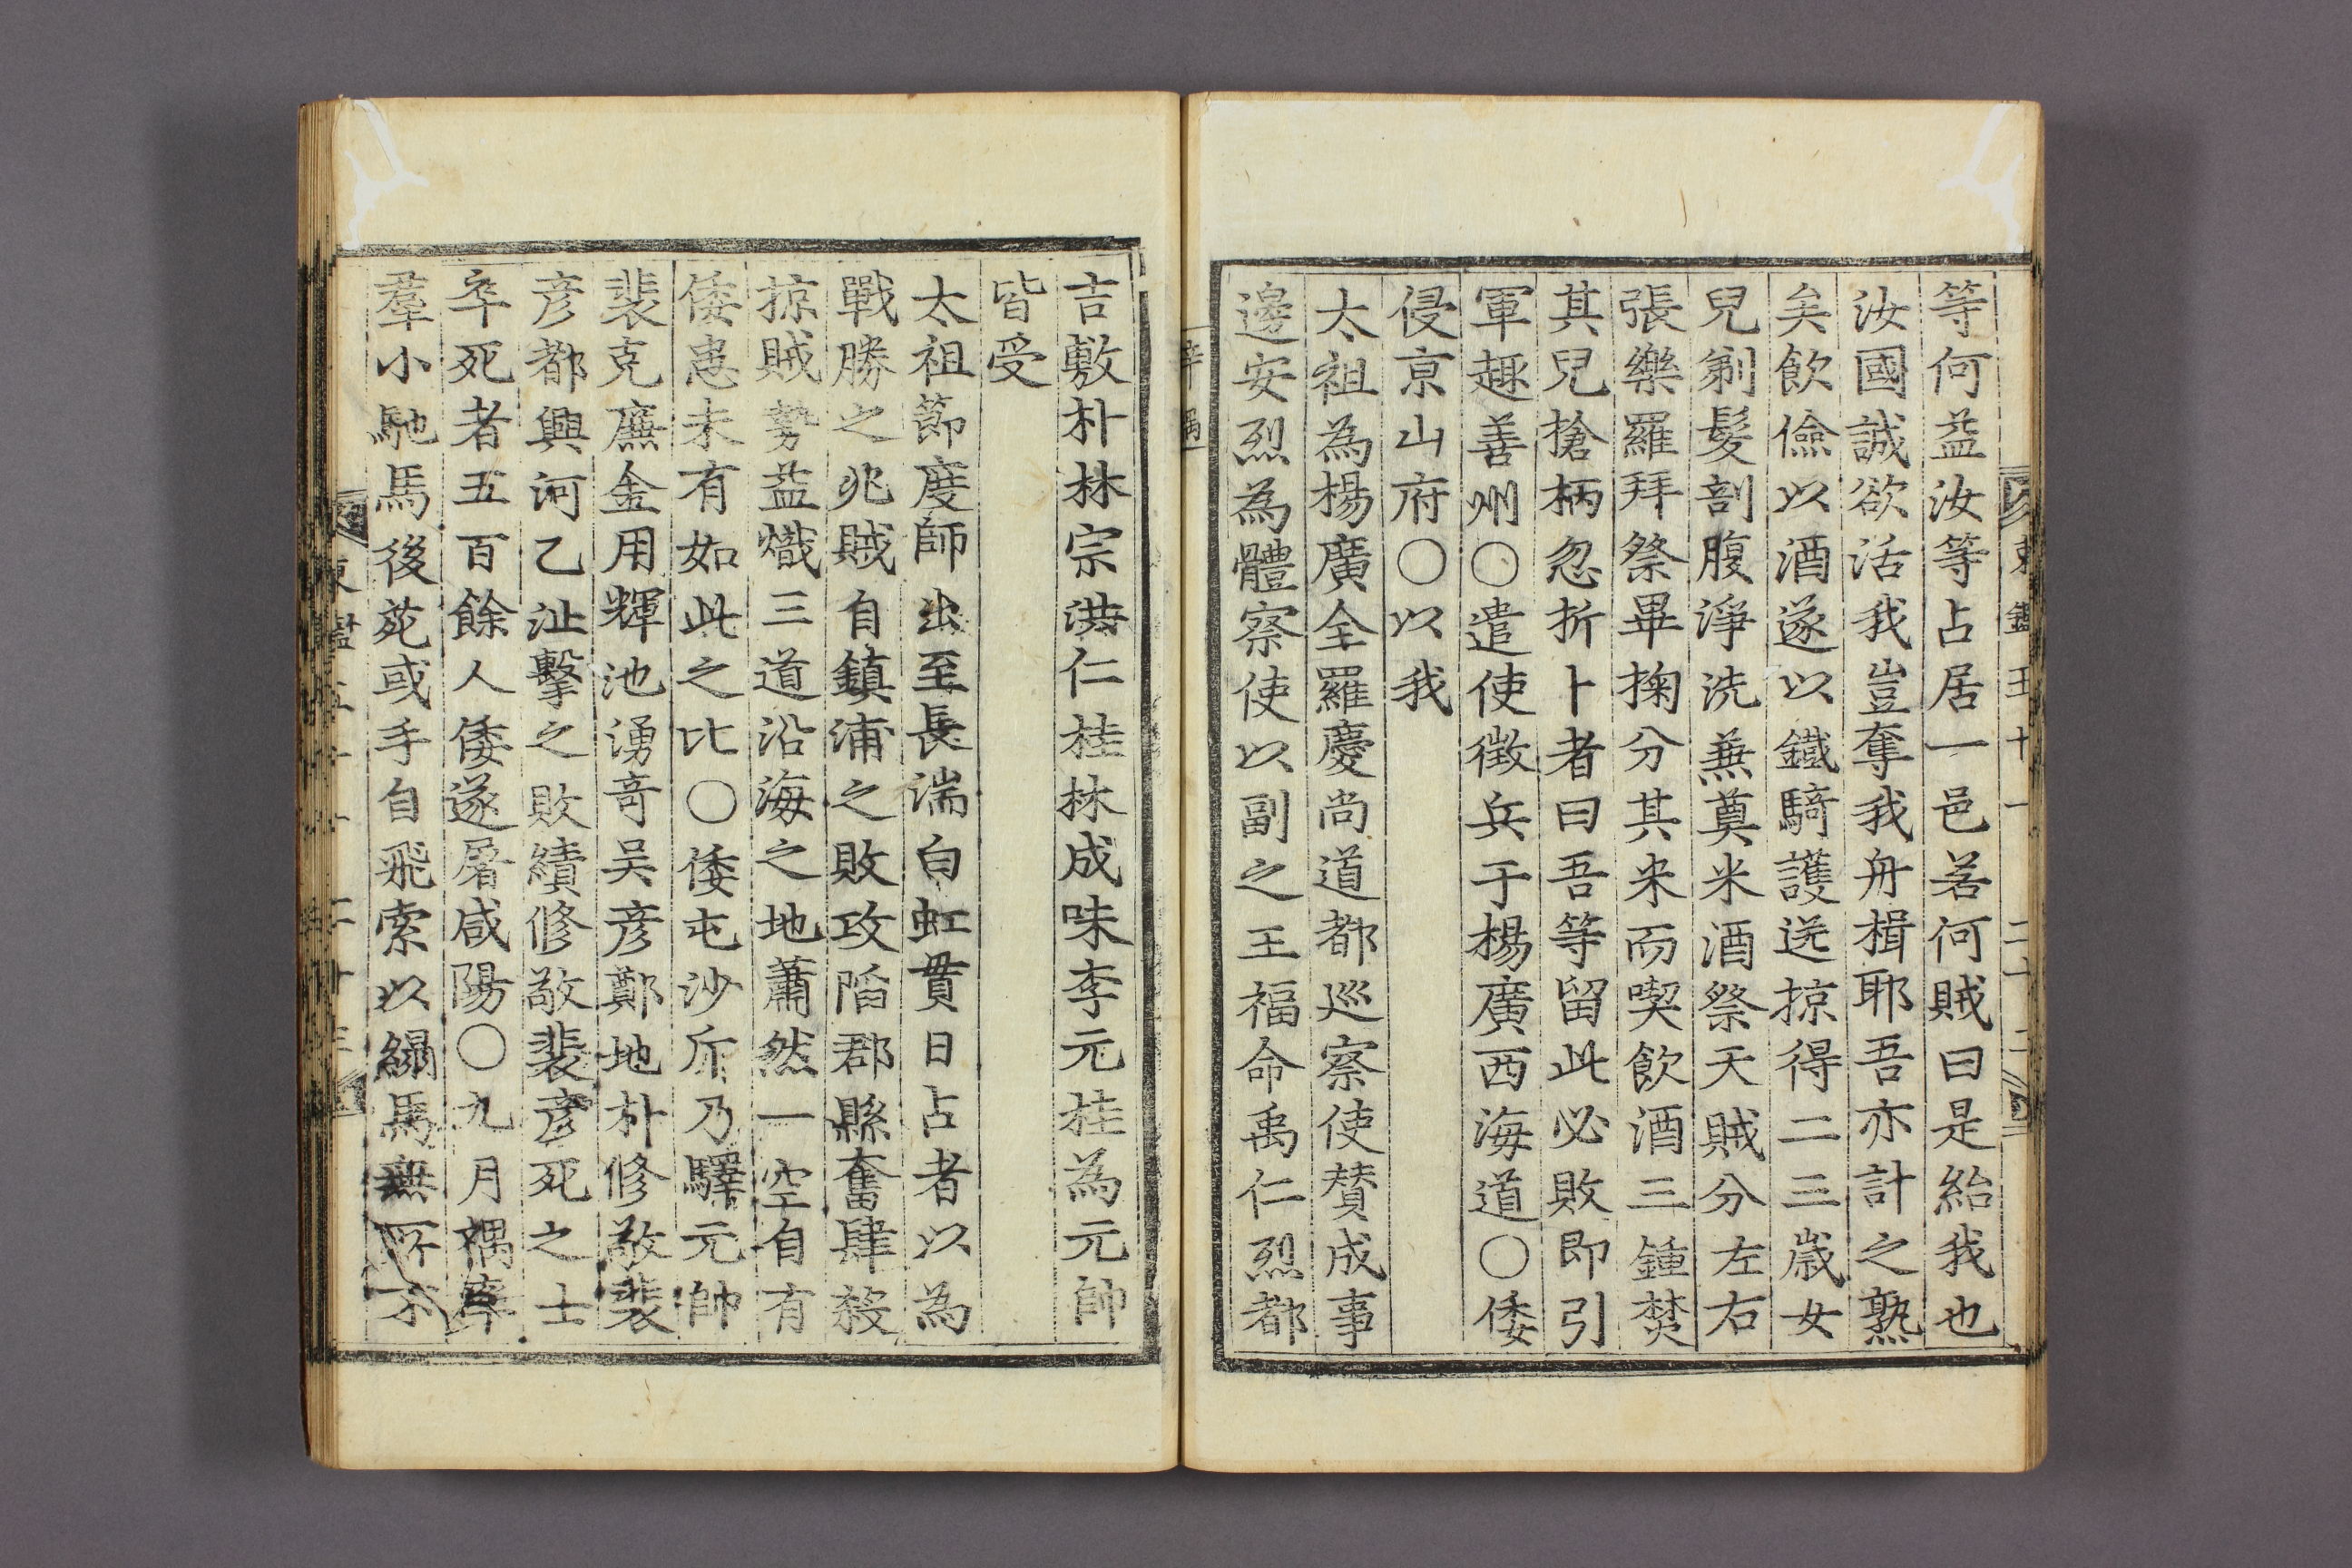 等何益汝等占居一邑若何賊曰是紿我也
汝國誠欲活我豈奪我舟楫耶吾亦計之熟
矣飮儉以酒遂以鐵騎護送掠得二三歲女
兒剃髮剖腹淨洗無奠米酒祭天賊分左右
張樂羅拜祭畢掬分其米而喫飮酒三鍾焚
其兒搶柄忽折卜者曰吾等留此必敗即引
軍趣善州〇遣使徵兵于楊廣西海道〇倭
侵京山府〇以我
太祖為楊廣全羅慶尚道都巡察使賛成事
邊安烈為體察使以副之王福命禹仁烈都
辛禑
吉敷朴林宗洪仁桂林成味李元桂為元帥
皆受
太祖節度師出至長湍白虹貫日占者以為
戰勝之兆賊自鎮浦之敗攻陷郡縣奮肆殺
掠賊勢益熾三道沿海之地蕭然一空自有
倭患未有如此之比〇倭屯沙斤乃驛元帥
裴克廉金用輝池湧奇吴彦鄭地朴修敬裴
彦都興河乙沚擊之敗績修敬裴彦死之士
卒死者五百餘人倭遂屠咸陽〇九月禑率
羣小馳馬後苑或手自飛索以繯馬無所不